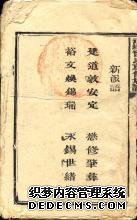 新派語
道敦安定 修肇彝
裕文煥錫瑞 錫世緒
织梦内容管理系统
DEDECMS.COM